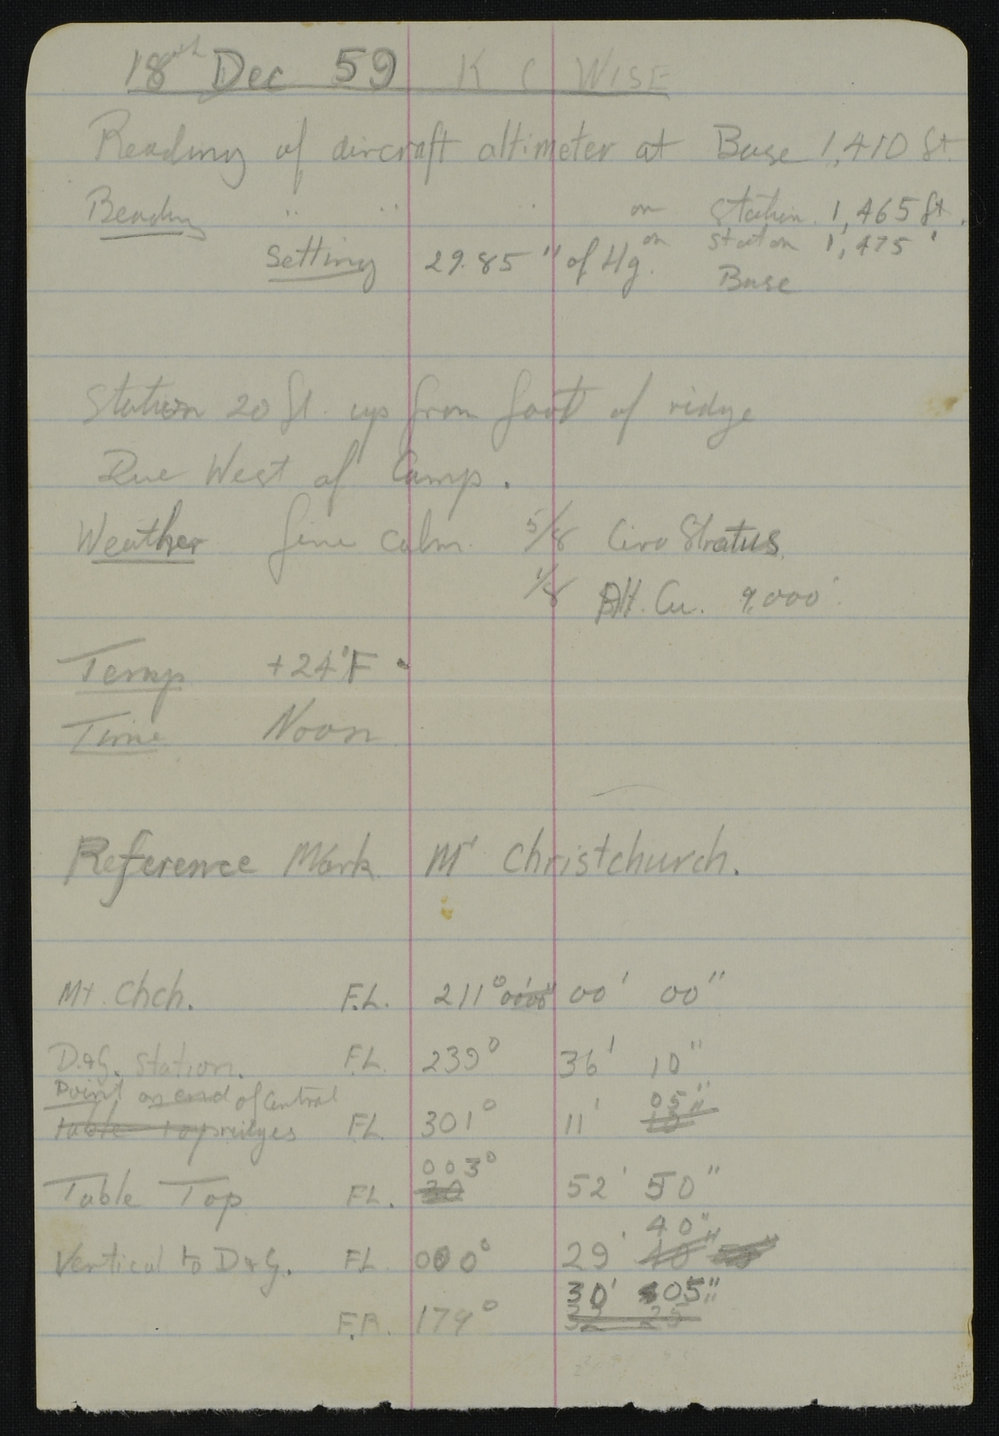 18th Dec 59 K C WISE
Reading of aircraft altimeter at Base 1,410 ft.
Reading " " " on Station 1,465 ft.
on Station 1,475 '
Setting 29.85" of Hg. Base
Station 20 ft. up from foot of ridge
Due West of Camp.
Weather fine calm. 5/8 Cirro Stratus.
1/8 Alt. Cu. 9,000'.
Temp +24°F
Time Noon
Reference Mark Mt Christchurch.
Mt. Chch. F.L. 211° 00'00" 00' 00"
D&G. Station. F.L. 239° 36' 10"
Point on end of Central
table top ridges F.L. 301° 11' 05" 10"
Table Top FL. 003° 30 52' 50"
Vertical to D&G. F.L. 000° 29' 40"
F.R. 179° 30' 05"
32 25